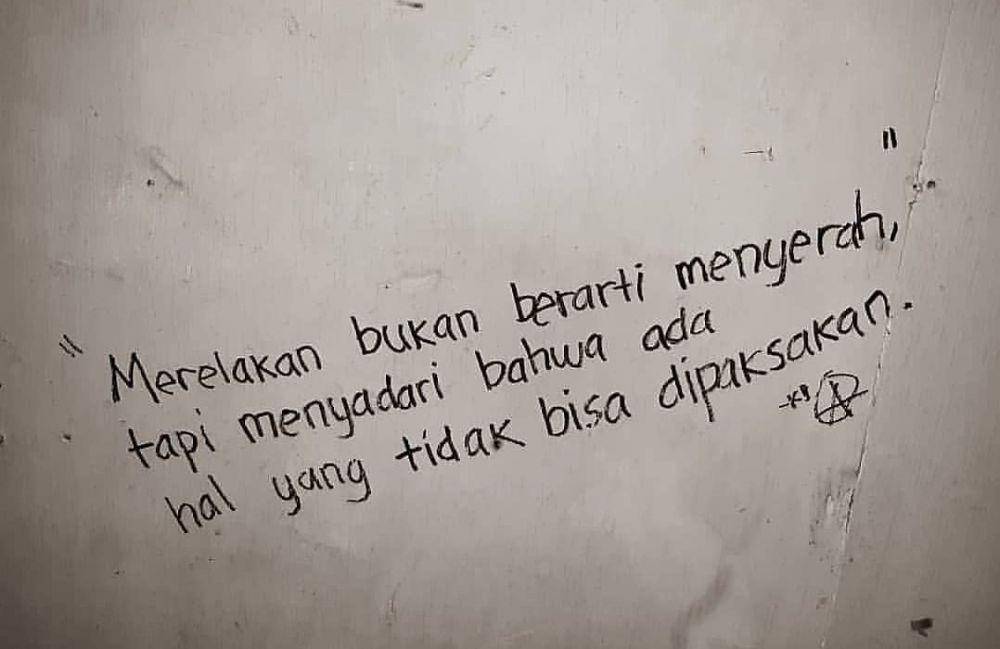 "Merelakan bukan berarti menyerah,"
tapi menyadari bahwa ada
hal yang tidak bisa dipaksakan.